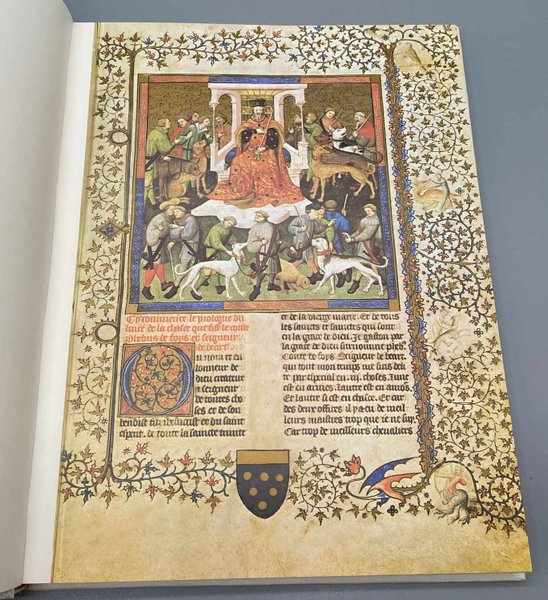 Cy commence le prologue du
livre de la chasse que fist le conte
phebus de foys et seigneur
de bearn
u nom et en
lonneur de
dieu createur
et seigneur
de toutes cho
ses et de son
benoist filz Jhesucrist et du saint
esperit. de toute la saincte trinite
et de la vierge marie. Et de tous
les saincts et sainctes qui sont
en la grace de dieu. Je gaston par
la grace de dieu surnomme pheb.
Conte de foys. Seigneur de bearn.
qui tout mon temps me suis delic
te par especial en .iii. choses. lune
est en armes. lautre est en amours.
Et lautre si est en chasce. Et car
des deux offices il y a eu de meil
leurs maistres trop que je ne suy.
Car trop de meilleurs chevaliers